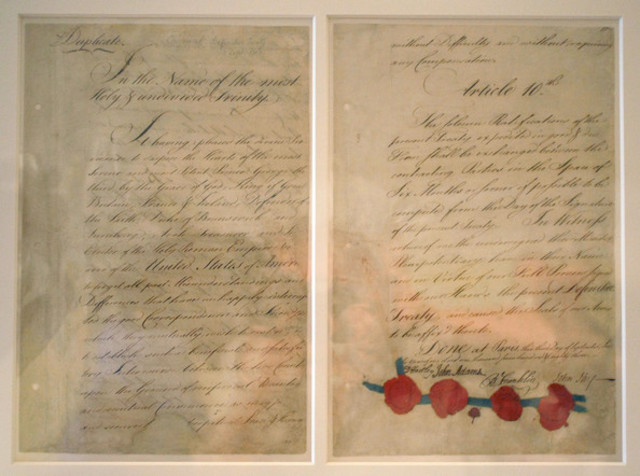 Duplicate.
In the Name of the most
Holy & undivided Trinity.
It having pleased the Divine Pro
vidence to dispose the Hearts of the most
Serene and most Potent Prince George the
third, by the Grace of God, King of Great
Britain, France & Ireland, Defender of
the Faith, Duke of Brunswick and
Lunebourg, Arch Treasurer and
Elector of the Holy Roman Empire
of the United States of America
to forget all past Misunderstandings and
Differences that have unhappily interrup
ted the good Correspondence and
which they mutually wish to
to establish such a beneficial and satisfac
tory Intercourse between the two
upon the Ground of reciprocal Advantages
and mutual Convenience as may
and secure Perpetual Peace & Harmony
without Difficulty and without requiring
any Compensation.
Article 10.th
The solemn Ratifications of the
present Treaty expedited in good & due
Form shall be exchanged between the
contracting Parties in the Space of
Six Months or sooner if possible to be
computed from the Day of the Signature
of the present Treaty. In Witness
whereof we the undersigned their Ministers
Plenipotentiary have in their Name
and in Virtue of our Full Powers signed
with our Hands the present Definitive
Treaty, and caused the Seals of our Arms
to be affix'd thereto.
Done at Paris this third Day of September
D Hartley John Adams B Franklin John Jay